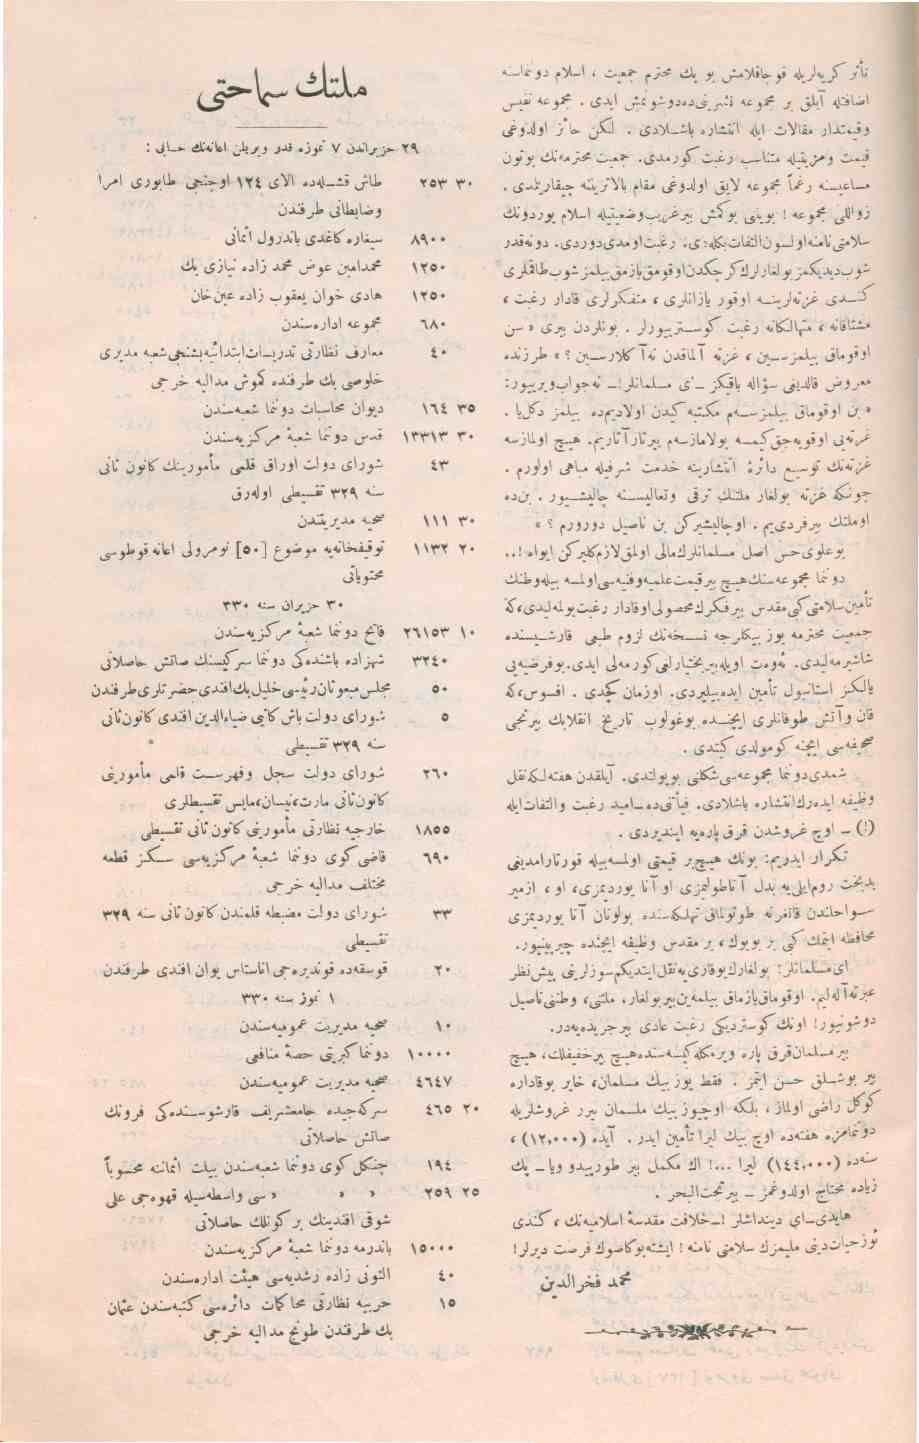 تأثر كريه‌لريله قوجاقلامش بو يك محترم جمعيت ، اسلام دونماسنه
اضافتله آيلق بر مجموعه نشريني‌ده‌دوشونمش ايدى . مجموعه نفيس
وقيمتدار مقالات ايله انتشاره باشلادى . لكن حائز اولدوغى
قيمت ومزيتيله متناسب رغبت كورمدى. جمعيت محترمه‌نك بوتون
مساعيسنه رغماً مجموعه لايق اولدوغى مقام بالاتريننه چيقاريلمدى .
زواللى مجموعه ! بوينى بوكمش بيرغريب‌وضعيتيله اسلام يوردونك
سلامتى نامنه‌اولسون‌التفات‌بكله‌دى، رغبت‌اومدى‌دوردى. دونه‌قدر
شوب‌ديديكمز بولغارلرك‌كرچكدن‌اوقومق‌يازمق‌بيلمز شوب‌طاقملرى
كندى غزته‌لرينه اوقور يازانلرى ، متفكرلرى قادار رغبت ،
مشتاقانه ، متهالكانه رغبت كوستريبورلر . بونلردن بيرى « سن
اوقوماق بيلمزسين ، غزته آلماقدن نه‌آ كلارسين ؟ » طرزنده
معروض قالديغى سؤاله باقيكز ـ‌اى مسلمانلر!ـ نه‌جواب‌ويرييور:
« بن اوقوماق بيلمزسه‌م مكتبه كيدن اولاديم‌ده بيلمز دكل‌يا .
غزته‌يى اوقويه‌جق‌كيمسه بولامازسه‌م ييرتارآتاريم. هيچ اولمازسه
غزته‌نك توسيع دائرهٔ انتشارينه خدمت شرفيله مباهى اولورم .
چونكه غزته بولغار ملتنك ترقى وتعاليسنه چاليشيور . بن‌ده
اوملتك بيرفردى‌يم . اوچاليشيركن بن ناصيل دورورم ؟ »
بوعلوى‌حس اصل مسلمانلرك‌مالى اولمق‌لازم‌كليركن ايواه !..
دونما مجموعه‌سنك‌هيچ بيرقيمت‌علميه‌وفنيه‌سى‌اولمسه بيله‌وطنك
تأمين‌سلامتى كبى‌مقدس بيرفكرك‌محصولى‌اوقادار رغبت‌بولمه‌ليدى‌،كه
جمعيت محترمه يوز بيكلرجه نسخه‌نك لزوم طبعى قارشيسنده
شاشيرمه‌ليدى. ئه‌وه‌ت اويله‌بيربختيارلغى‌كورمه‌لى ايدى.بوفرضيه‌يى
يالكيز استانبول تأمين ايده‌بيليردى. اوزمان كچدى . افسوس،كه
قان وآتش طوفانلرى ايچنده بوغولوب تاريخ انقلابك بيرنجى
صحيفه‌سى ايچنه كومولدى كيتدى .
شمدى‌دونما مجموعه‌سى‌شكلنى بويولتدى. آيلقدن هفته‌لكه‌نقل
وظيفه ايده‌رك‌انتشاره باشلادى. فيأتنى‌ده‌ـ‌اميد رغبت والتفات‌ايله
(!) ـ اوچ غروشدن قرق پاره‌يه ايندیردى .
تكرار ايدريم: بونك هيچ‌بر قيمتى اولمسه‌بيله قورتارامديغى
بدبخت روم‌ايلى‌يه بدل آناطوليمزى او آنا يورديمزى، او ، ازمير
سواحلندن قافزته طوتولمانى تهلكه‌سنده بولونان آنا يورديمزى
محافظه ايتمك كبى بر بويوك ، بر مقدس وظيفه ايچنده چيرپينيور.
اى‌مسلمانلر! بولغارك‌يوقارى‌يه‌نقل‌ايتديكم‌سوزلرينى پيش‌نظر
عبرته‌آله‌ليم. اوقوماق‌يازماق بيلمه‌ين‌بيربولغار، ملتنى، وطننى‌ناصيل
دوشونيور! اونك كوسترديكى رغبت عادى بيرجريده‌يه‌در.
بيرمسلمان‌قرق پاره ويرمكله‌كيسه‌سنده‌هيچ بيرخفيفلك، هيچ
بير بوشلق حس ايتمز . فقط يوز بيك مسلمان، خاير بوقاداره
كوكل راضى اولماز، بلكه اوچيوز بيك ملسمان بيرر غروشلريله
دونمامزه هفته‌ده اوچ بيك ليرا تأمين ايدر. آيده (١٢,٠٠٠) ،
سنه‌ده (١٤٤,٠٠٠) ليرا ...! اك مكمل بير طورپيدو وياـ پك
زياده محتاج اولدوغمز ـ بيرتحت‌البحر .
هايدى‌ـ‌اى دينداشلر !ـ‌خلافت مقدسهٔ اسلاميه‌نك ، كندى
ئوزحيات‌دينى مليمزك سلامتى نامنه ! ايشته‌بوكاصوك فرصت ديرلر!
محمد فخرالدين
ملتك سماحتى
٢٩ حزيراندن ٧ تموزه قدر ويريلن اعانه‌نك حسابى :
٣٠ ٢٥٣ طاش قشله‌ده الاى ١٢٤ اوچنجى طابورى امرا
وضابطانى طرفندن
٨٩٠٠ سيغاره كاغدى باندرول اثمانى
١٢٥٠ محمدامين عوض محمد زاده نيازى بك
١٢٥٠ هادى خوان يعقوب زاده عين‌خان
٦٨٠ مجموعه اداره‌سندن
٤٠ معارف نظارتى تدريسات‌ابتدائيه‌بشنجى‌شعبه مديرى
خلوصى بك طرفنده كموش مداليه خرجى
٣٥ ١٦٤ ديوان محاسبات دونما شعبه‌سندن
٣٠ ١٣٣١٣ قدس دونما شعبهٔ مركزيه‌سندن
٤٣ شوراى دولت اوراق قلمى مأمورينك كانون ثانى
سنه ٣٢٩ تقسيطى اوله‌رق
٣٠ ١١١ صحيه مديريتندن
٢٠ ١١٣٢ توقيفخانه‌يه موضوع [٥٠] نومرولى اعانه قوطوسى
محتوياتى
٣٠ حزيران سنه ٣٣٠
١٠ ٢٦١٥٣ فاتح دونما شعبهٔ مركزيه‌سندن
٣٢٤٠ شهزاده باشنده‌كى دونما سركيسنك صاتش حاصلاتى
٥٠ مجلس مبعوثان‌رئيسى خليل‌بك‌افندى حضرتلرى‌طرفندن
٥ شوراى دولت باش كاتبى ضياءالدين افندى كانون‌ثانى
سنه ٣٢٩ تقسيطى
٢٦٠ شوراى دولت سجل وفهرست قلمى مأمورينى
كانون‌ثانى مارت،نيسان،مايس تقسيطلرى
١٨٥٥ خارجيه نظارتى مأمورينى كانون ثانى تقسيطى
٦٩٠ قاضى كوى دونما شعبهٔ مركزيه‌سى سكز قطعه
مختلف مداليه خرجى
٣٣ شوراى دولت مضبطه قلمندن كانون ثانى سنه ٣٢٩
تقسيطى
٢٠ قوسقه‌ده قوندیره‌جى اناستاس يوان افندى طرفندن
١ تموز سنه ٣٣٠
١٠ صحيه مديريت عموميه‌سندن
١٠٠٠٠ دونما كبريتى حصهٔ منافعى
٤٦٤٧ صحيه مديريت عموميه‌سندن
٢٠ ٤٦٥ سركه‌جيده جامعشريف قارشوسنده‌كى فرونك
صاتش حاصلاتى
١٩٤ چنكل كوى دونما شعبه‌سندن بيلت اثماننه محسوباً
٢٥ ٢٥٩ « « « سى واسطه‌سيله قهوه‌جى على
شوقى افندينك بر كونلك حاصلاتى
١٥٠٠٠ باندرمه دونما شعبهٔ مركزيه‌سندن
٤٠ التونى زاده رشديه‌سى هيئت اداره‌سندن
١٥ حربيه نظارتى محاكمات دائره‌سى كتبه‌سندن عثمان
بك طرفندن طونج مداليه خرجى